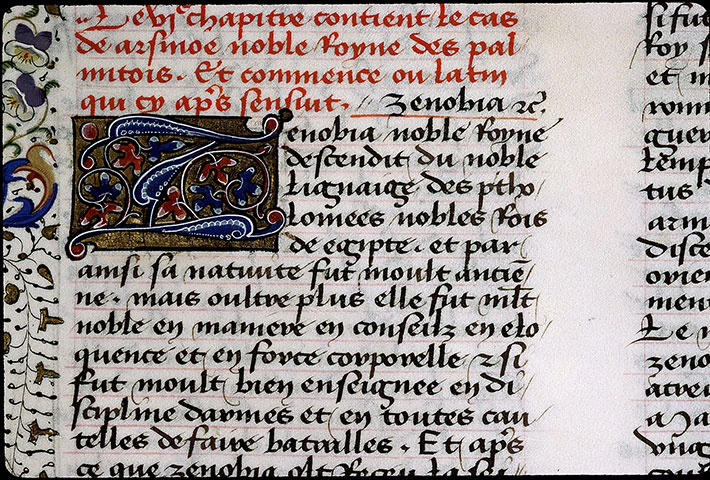 Le vi.e chapitre contient le cas
de arsinoe noble Royne des pal
mitois. Et commence ou latin
qui cy aps sensuit. Zenobia ⁊c.
Zenobia noble Royne
descendit du noble
lignaige des ptho
lomees nobles Rois
de egipte. et par
ainsi sa natiuite fut moult anciē
ne. mais oultre plus elle fut mlt
noble en maniere en conseilz en elo
quence et en force corporelle ⁊ si
fut moult bien enseignee en di
scipline darmes et en toutes cau
telles de faire batailles. Et aps
ce que zenobia olt
Roy
et
romm
guer
temp
tus
arm
disce
orien
men
Le
zeno